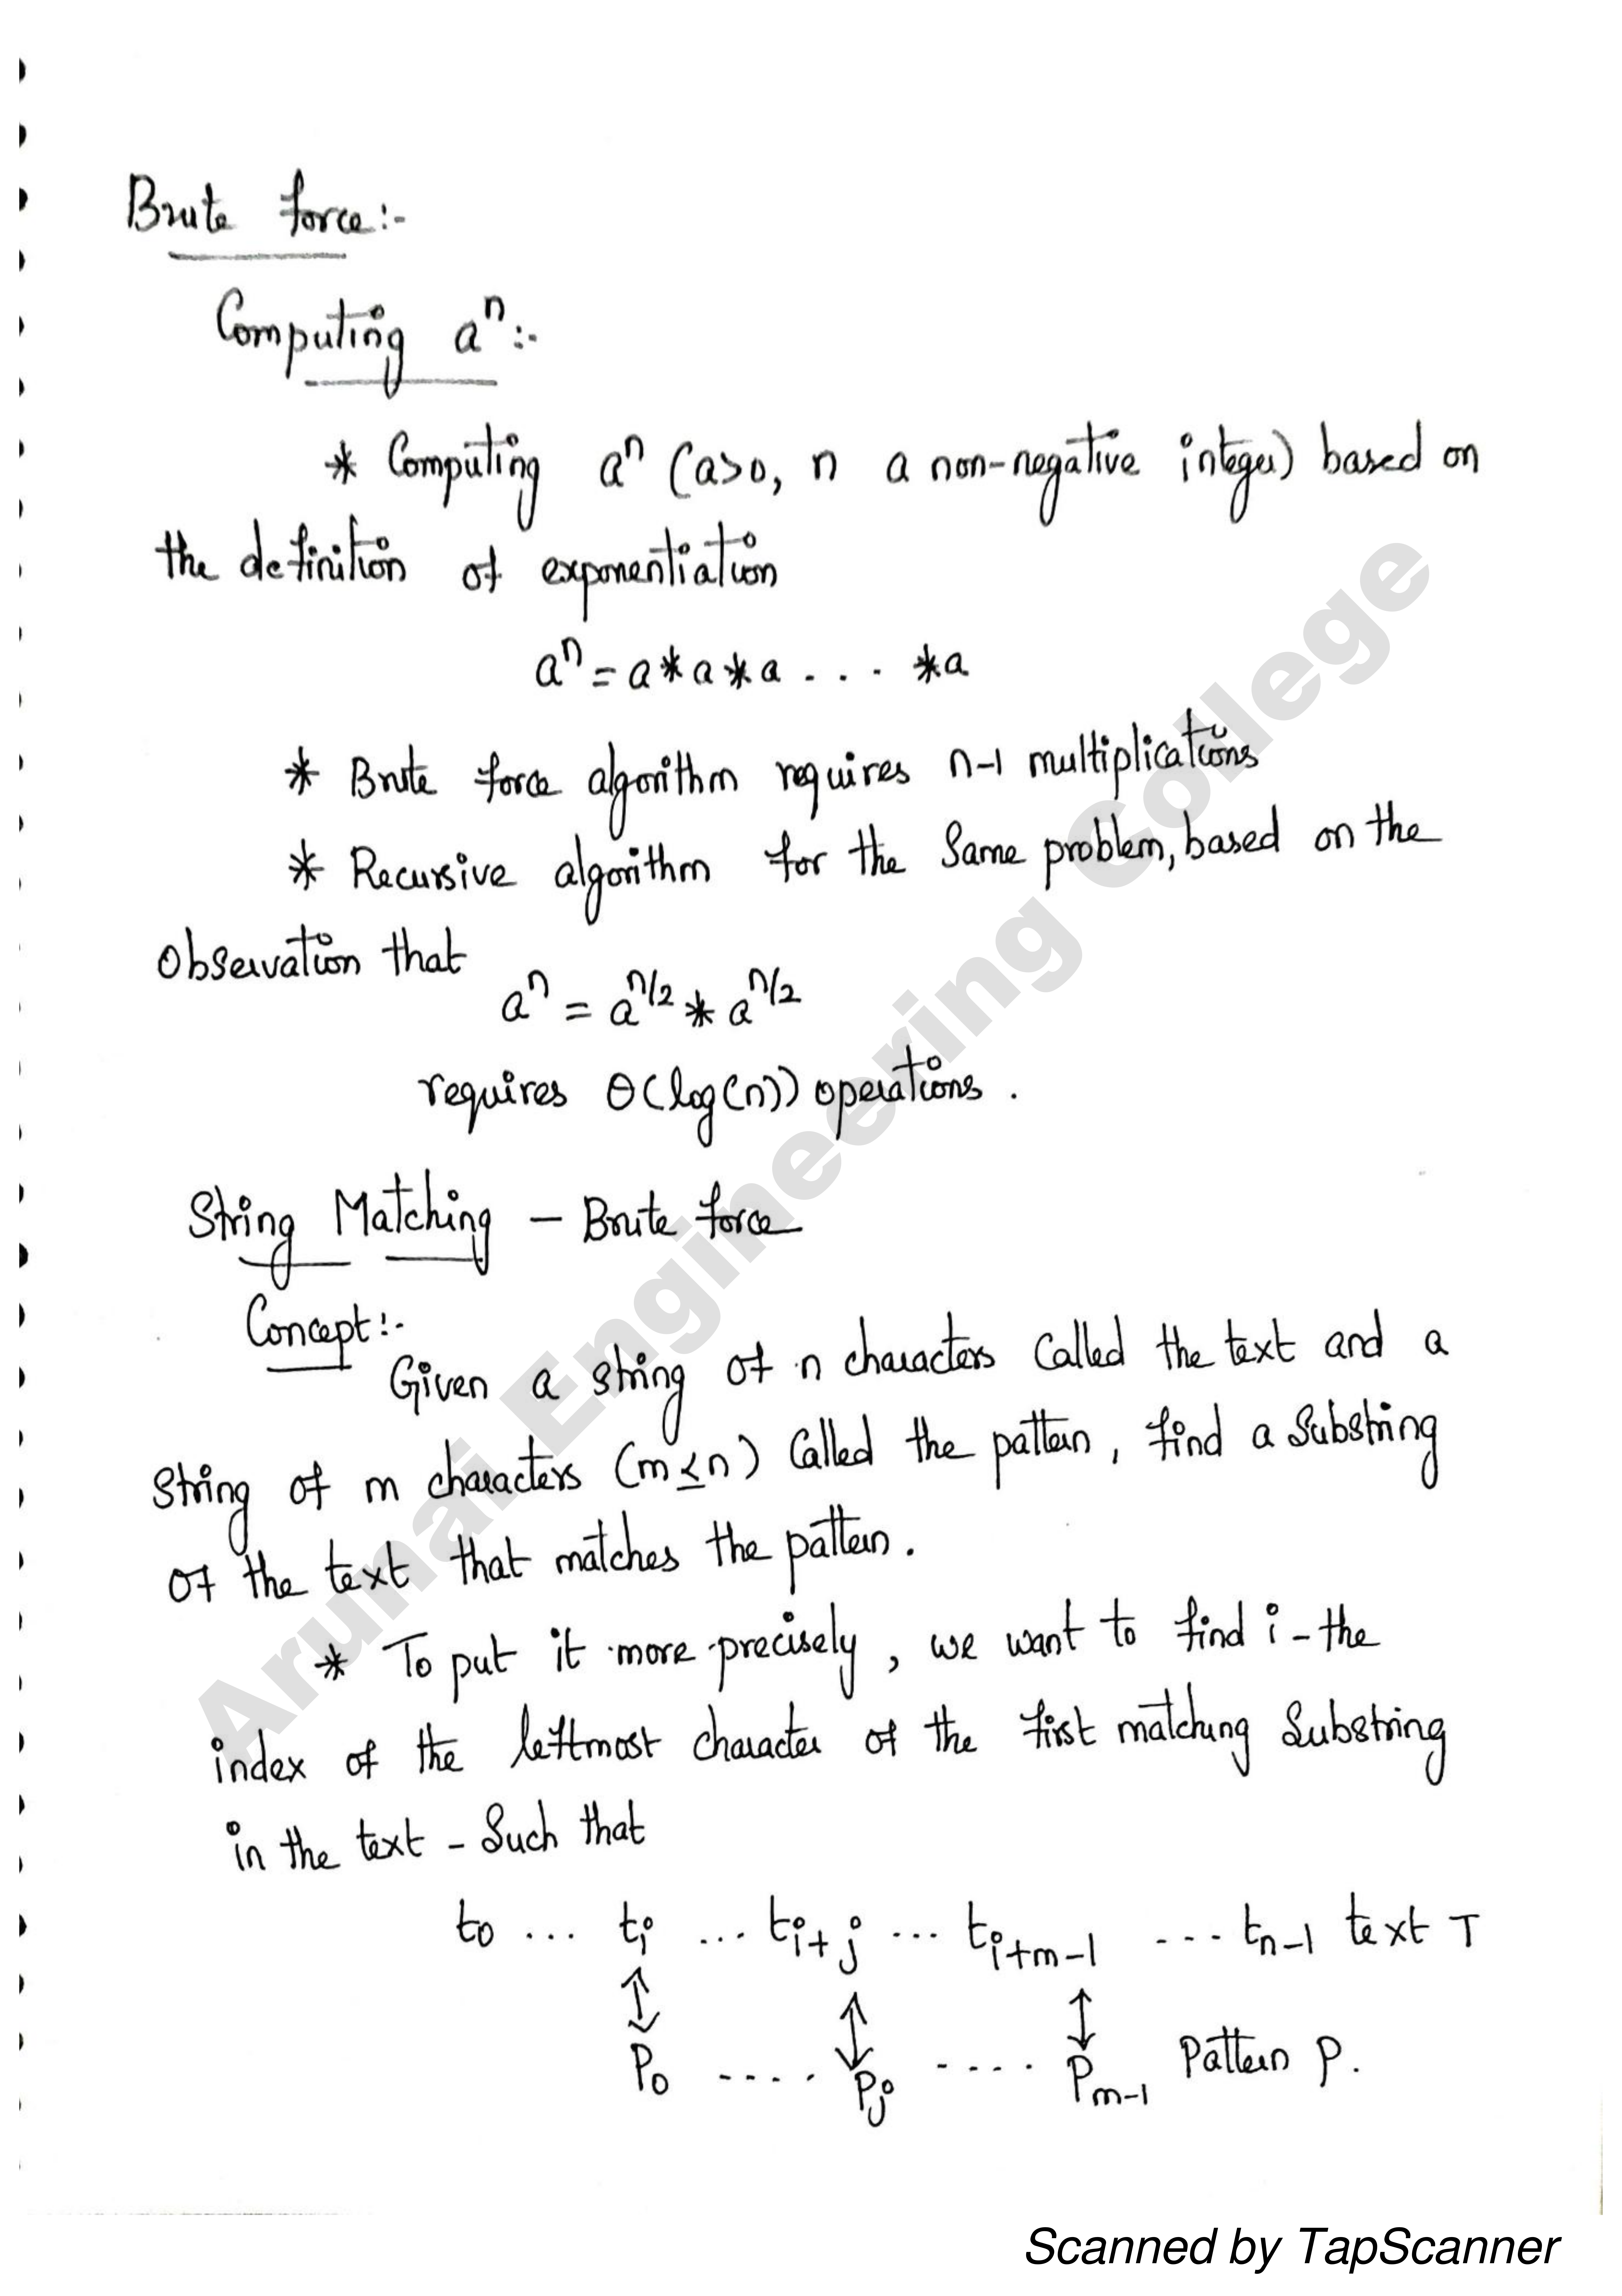 Brute force:-
Computing aⁿ:-
* Computing aⁿ (a>0, n a non-negative integer) based on
the definition of exponentiation
aⁿ = a * a * a . . . * a
* Brute force algorithm requires n-1 multiplications
* Recursive algorithm for the Same problem, based on the
Observation that
aⁿ = a^n/2 * a^n/2
requires Θ(log(n)) operations .
String Matching - Brute force
Concept:-
Given a string of n characters Called the text and a
String of m characters (m ≤ n) Called the pattern, find a Substring
of the text that matches the pattern.
* To put it more precisely, we want to find i - the
index of the leftmost character of the first matching Substring
in the text - Such that
t0 ... ti ... ti+j ... ti+m-1 ... tn-1 text T
↕ ↕ ↕
P0 .... Pj .... Pm-1 Pattern P.
Arunai Engineering College
Scanned by TapScanner